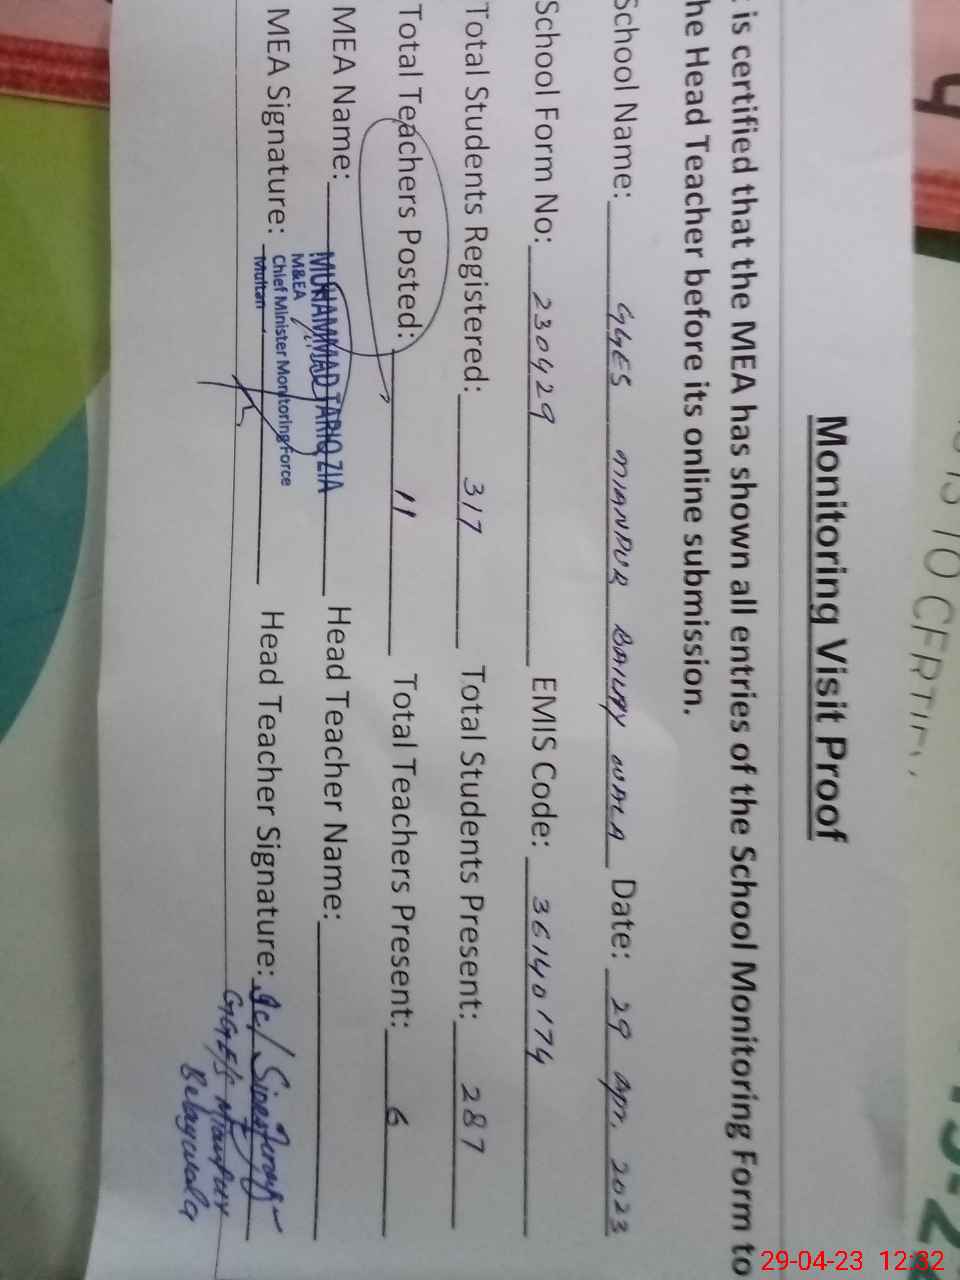 Monitoring Visit Proof
is certified that the MEA has shown all entries of the School Monitoring Form to
he Head Teacher before its online submission.
School Name: GGES MIANPUR BAILAY WALA Date: 29 Apr. 2023
School Form No: 230429 EMIS Code: 36140174
Total Students Registered: 317 Total Students Present: 287
Total Teachers Posted: 11 Total Teachers Present: 6
MEA Name: MUHAMMAD TARIQ ZIA Head Teacher Name:
M&EA
Chief Minister Monitoring Force
Multan
MEA Signature: Head Teacher Signature:
GGE/S Mianpur
Belaywala
29-04-23 12:32